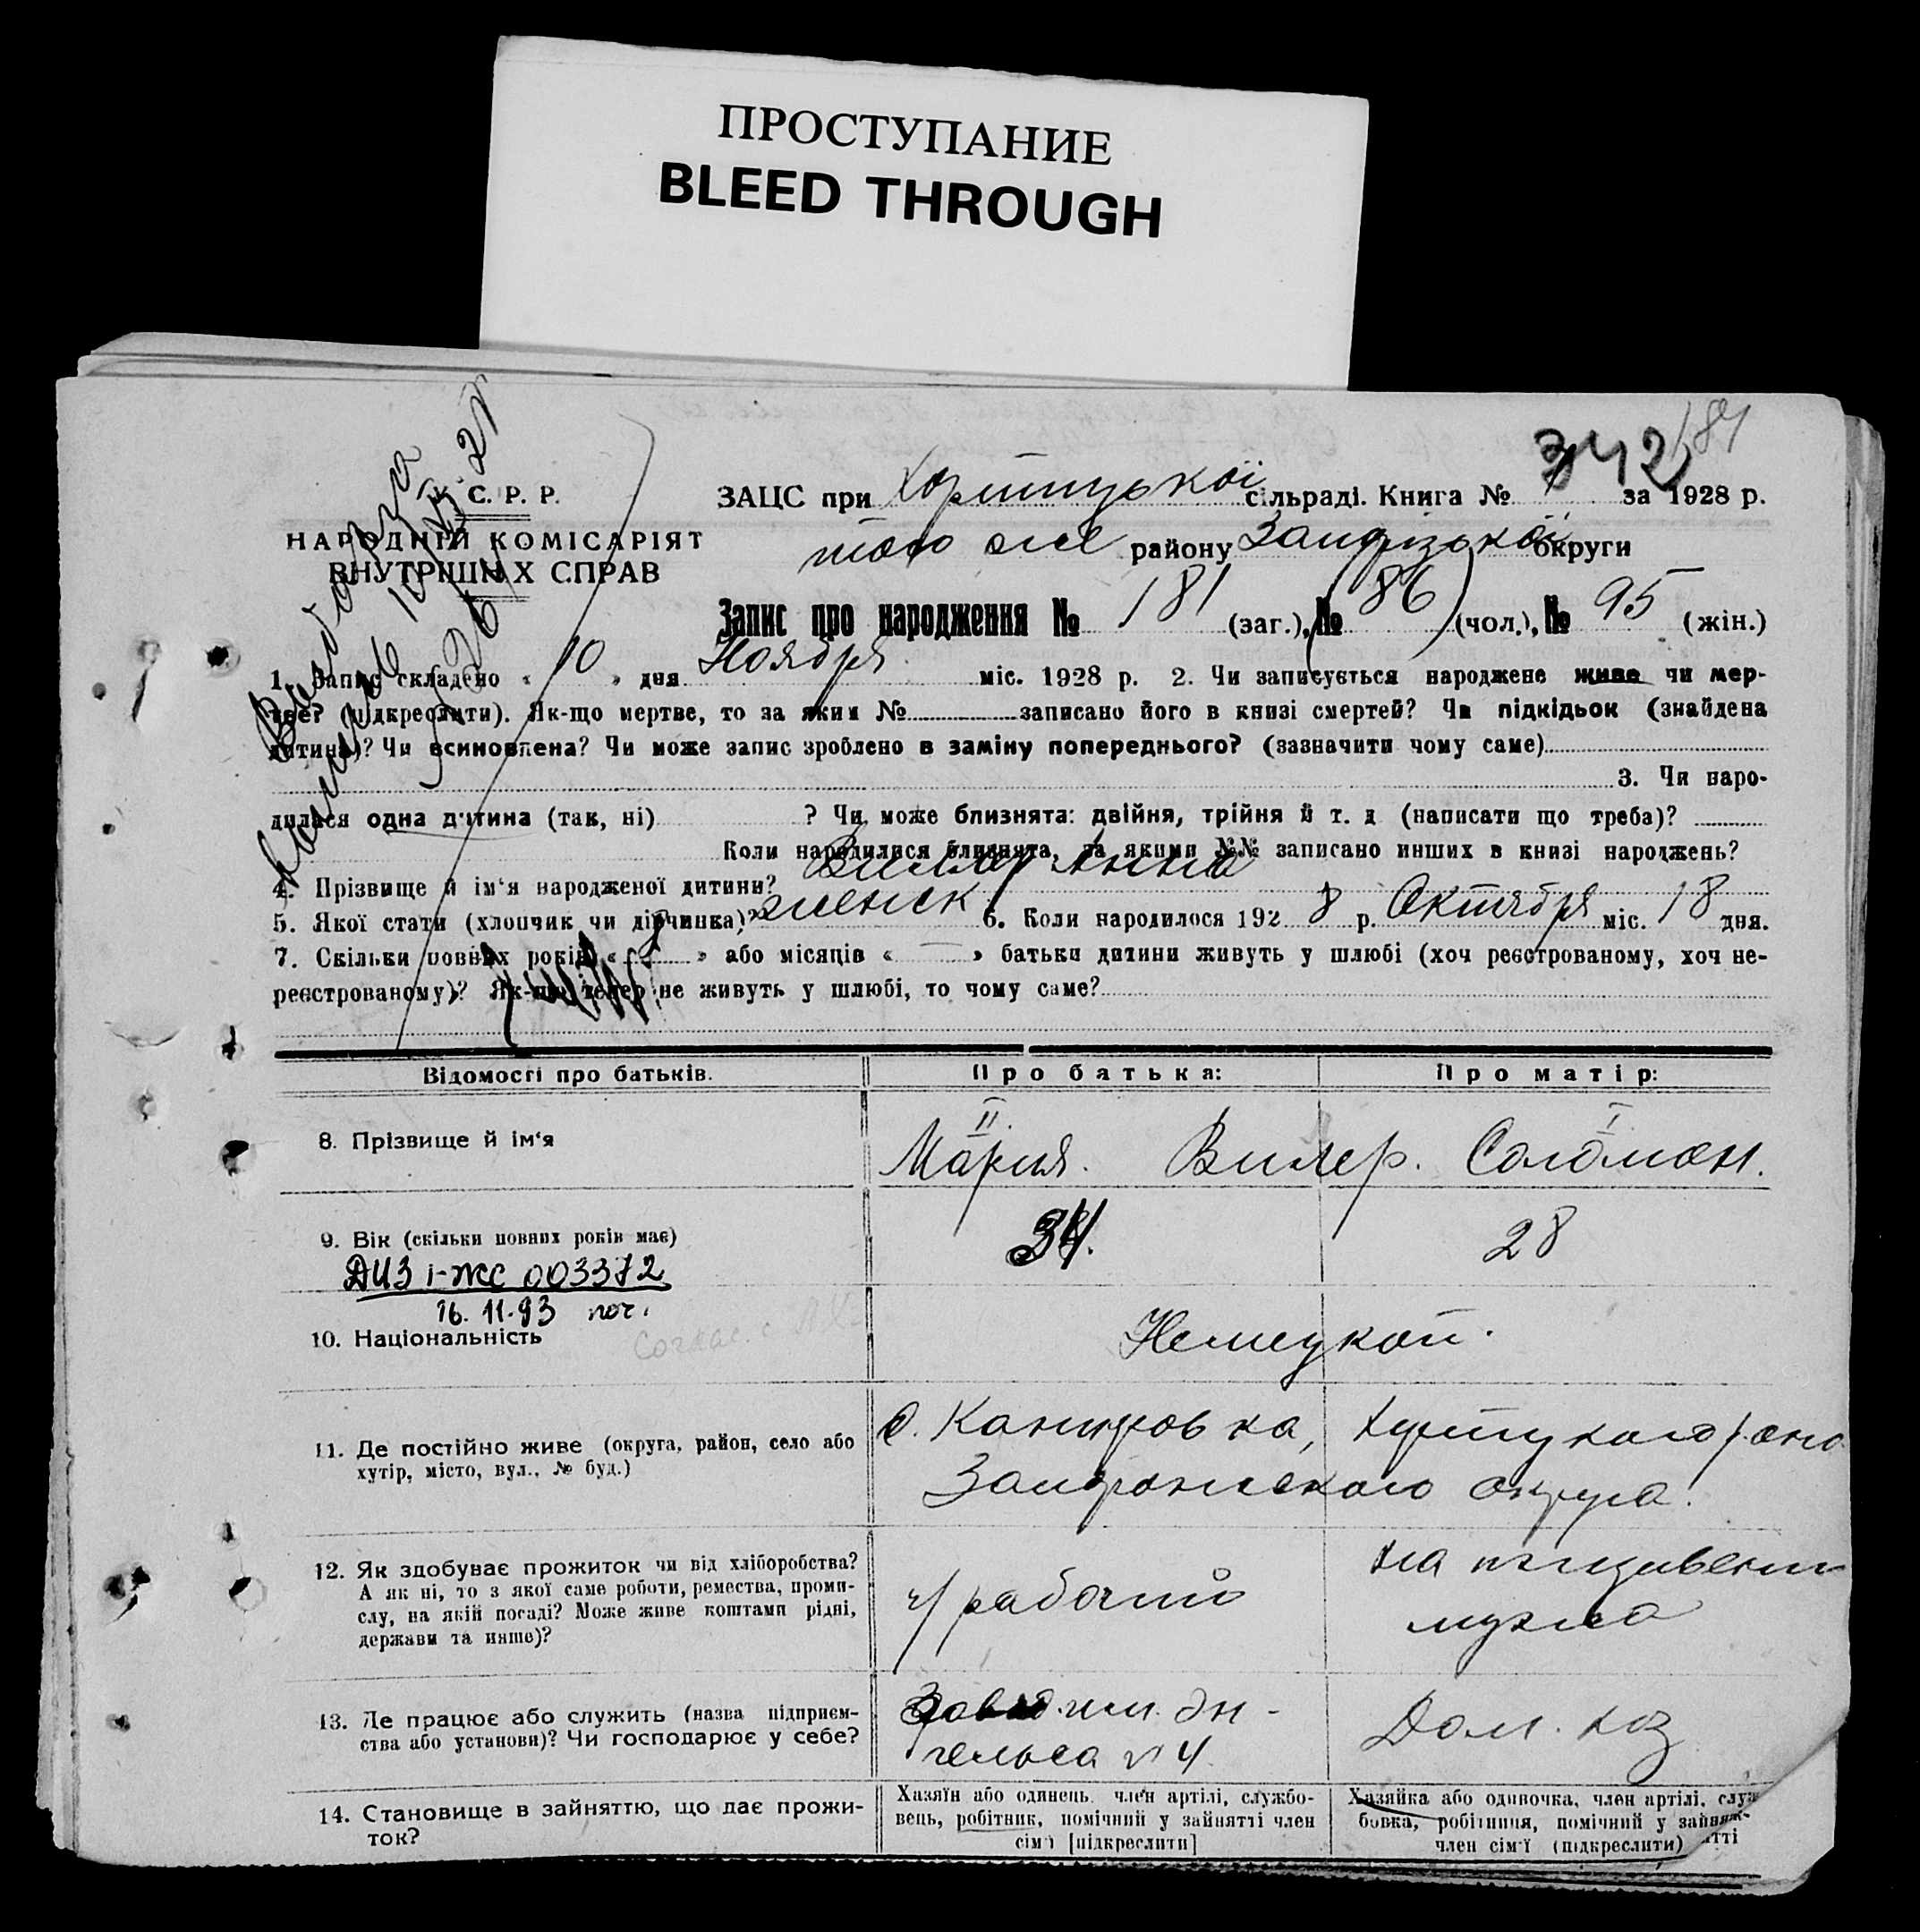 ПРОСТУПАНИЕ
BLEED THROUGH
184
342
С. Р. Р.
НАРОДНІЙ КОМІСАРІЯТ
ВНУТРІШНІХ СПРАВ
ЗАЦС при Хортицької сільраді. Книга № за 1928 р.
того же району Запорізької округи
Запис про народження № 181 (заг.), № 86 (чол.), № 95 (жін.)
1. Запис складено « 10 » дня Ноября міс. 1928 р. 2. Чи записується народжене живе чи мер-
тве? (підкреслити). Як-що мертве, то за яким № записано його в книзі смертей? Чи підкідьок (знайдена
дитина)? Чи всиновлена? Чи може запис зроблено в заміну попереднього? (зазначити чому саме)
3. Чи наро-
дилася одна дитина (так, ні) ? Чи може близнята: двійня, трійня й т. д (написати що треба)?
Коли народилися близнята, за якими №№ записано инших в книзі народжень?
4. Прізвище й ім'я народженої дитини? Вилер Анна
5. Якої стати (хлопчик чи дівчинка)? женск 6. Коли народилося 192 8 р. Октября міс. 18 дня.
7. Скільки повних років « » або місяців « — » батьки дитини живуть у шлюбі (хоч реєстрованому, хоч не-
реєстрованому)? Як-що тепер не живуть у шлюбі, то чому саме?
Відомості про батьків. Про батька: Про матір:
II I
8. Прізвище й ім'я Мария. Вилер. Соломон.
9. Вік (скільки повних років має) 34. 28
003372
16.11.93
10. Національність Немецкой.
11. Де постійно живе (округа, район, село або хутір, місто, вул., № буд.)
Запорожского округа.
12. Як здобуває прожиток чи від хліборобства?
А як ні, то з якої саме роботи, ремества, проми-
слу, на якій посаді? Може живе коштами рідні,
держави та инше)?
ч/рабочий
на иждивении
мужа
13. Де працює або служить (назва підприєм-
ства або установи)? Чи господарює у себе?
Завод. им. Эн-
гельса № 4.
Дом. хоз
14. Становище в зайняттю, що дає прожи-
ток?
Хазяїн або одинець, член артілі, службо-
вець, робітник, помічний у зайнятті член
сім'ї [підкреслити]
Хазяйка або одиночка, член артілі, служ-
бовка, робітниця, помічний у зайнятті
член сім'ї (підкреслити)